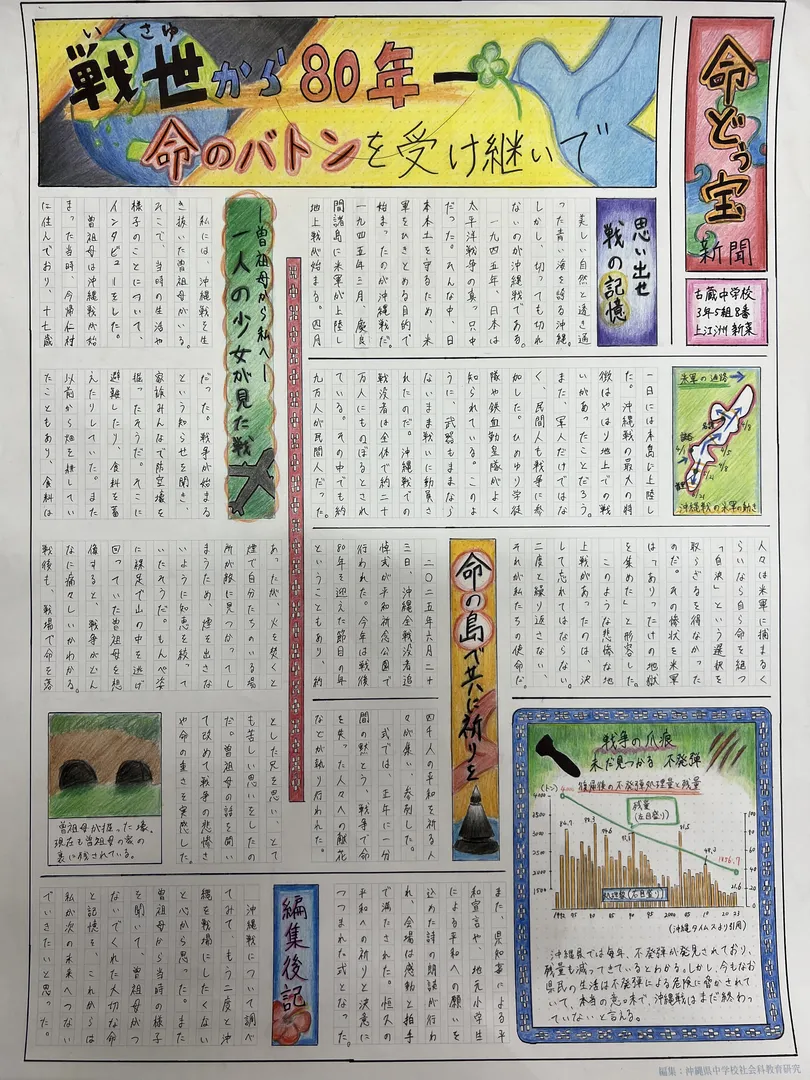 命どぅ宝
新聞
古蔵中学校
3年5組8番
上江洲 新菜
いくさゆ
戦世から80年ー
命のバトンを受け継いで
思い出せ
戦の記憶
美しい自然と透き通
った青い海を誇る沖縄。
しかし、切っても切れ
ないのが沖縄戦である。
一九四五年、日本は
太平洋戦争の真っ只中
だった。そんな中、日
本本土を守るため、米
軍をひきとめる目的で
始まったのが沖縄戦だ。
一九四五年三月、慶良
間諸島に米軍が上陸し
地上戦が始まる。四月
米軍の進路
沖縄戦の米軍の動き
一日には本島に上陸し
た。沖縄戦の最大の特
徴はやはり地上での戦
いがあったことだろう。
また、軍人だけではな
く、民間人も戦争に参
加した。ひめゆり学徒
隊や鉄血勤皇隊がよく
知られている。このよ
うに、武器もままなら
ないまま戦いに動員さ
れたのだ。沖縄戦での
戦没者は全体で約二十
万人にものぼるとされ
ている。その中でも約
九万人が民間人だった。
人々は米軍に捕まるく
らいなら自ら命を絶つ
「自決」という選択を
取らざるを得なかった
のだ。その惨状を米軍
は「ありったけの地獄
を集めた」と形容した。
このような悲惨な地
上戦があったのは、決
して忘れてはならない。
二度と繰り返さない、
それが私たちの使命だ。
戦争の爪痕
未だ見つかる 不発弾
復帰後の不発弾処理量と残量
(トン)
残量
(右目盛り)
処理量(左目盛り)
1856.7
(沖縄タイムスより引用)
沖縄県では毎年、不発弾が発見されており、
残量も減ってきているとわかる。しかし、今もなお
県民の生活は不発弾による危険に脅かされて
いて、本当の意味で、沖縄戦はまだ終わっ
ていないと言える。
ー曽祖母から私へー
一人の少女が見た戦
私には、沖縄戦を生
き抜いた曽祖母がいる。
そこで、当時の生活や
様子のことについて、
インタビューをした。
曽祖母は沖縄戦が始
まった当時、今帰仁村
に住んでおり、十七歳
だった。戦争が始まる
という知らせを聞き、
家族みんなで防空壕を
掘ったそうだ。そこに
避難したり、食料を蓄
えたりしていた。また
以前から畑を耕してい
たこともあり、食料は
あったが、火を焚くと
煙で自分たちのいる場
所が敵に見つかってし
まうため、煙を出さな
いように知恵を絞って
いたそうだ。もんぺ姿
に裸足で山の中を逃げ
回っていた曽祖母を想
像すると、戦争がどん
なに痛々しいかわかる。
戦後も、戦場で命を落
とした兄を思い、とて
も苦しい思いをしたの
だ。曽祖母の話を聞い
て改めて戦争の悲惨さ
や命の重さを実感した。
曽祖母が掘った壕。
現在も曽祖母の家の
裏に残されている。
命の島で共に祈りを
二〇二五年六月二十
三日、沖縄全戦没者追
悼式が平和祈念公園で
行われた。今年は戦後
80年を迎えた節目の年
ということもあり、約
四千人の平和を祈る人
々が集い、参列した。
式では、正午に一分
間の黙とう、戦争で命
を失った人々への献花
などが執り行われた。
また、県知事による平
和宣言や、地元小学生
による平和への願いを
込めた詩の朗読が行わ
れ、会場は感動と拍手
で満たされた。恒久の
平和への祈りと決意に
つつまれた式となった。
編集後記
沖縄戦について調べ
てみて、もう二度と沖
縄を戦場にしたくない
と心から思った。また
曽祖母から当時の様子
を聞いて、曽祖母がつ
ないでくれた大切な命
と記憶を、これからは
私が次の未来へつない
でいきたいと思った。
編集：沖縄県中学校社会科教育研究